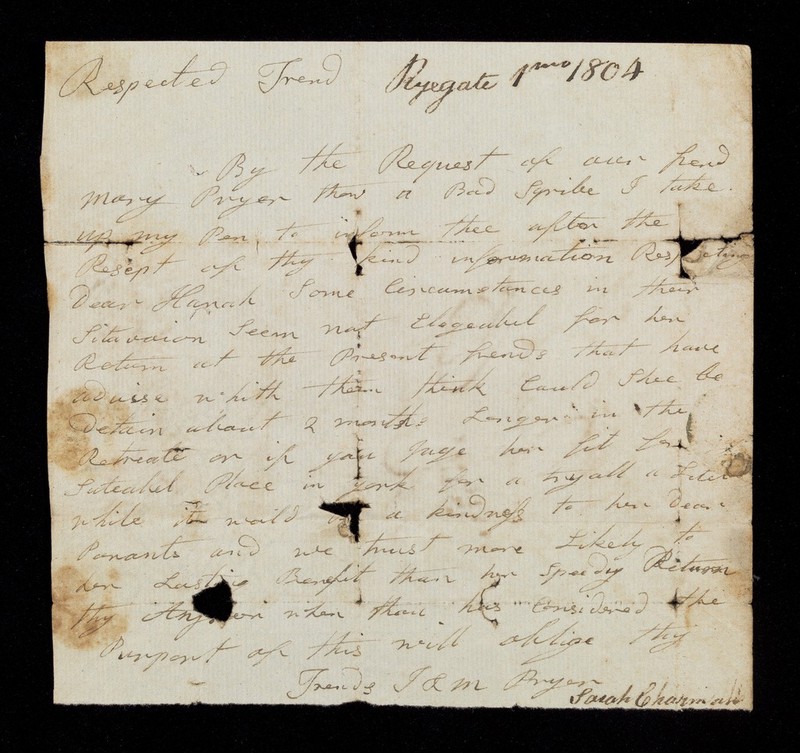 Respected Frend Ryegate 1mo 1804
By the Request of our frend
Mary Pryer thow a Bad Scribe I take
up my Pen to inform thee after the
Resept of thy kind information Respecting
Dear Hanah Some Circumstances in their
Sitavaion Seem not Elegeabel for her
Return at the Present frends that have
advisse whith them think Could Shee be
Detain about 2 months Longer in the
Retreate or if you juge her fit for
Suteabel Place in york for a tryall a Litel
while it waild be a kindness to her Dear
Parants and we trust more Likely to
her Lasting Benefit than her Speedy Return
thy when thou has Considered the
Purport of this will oblige thy
Frends J & M Pryer
Sarah